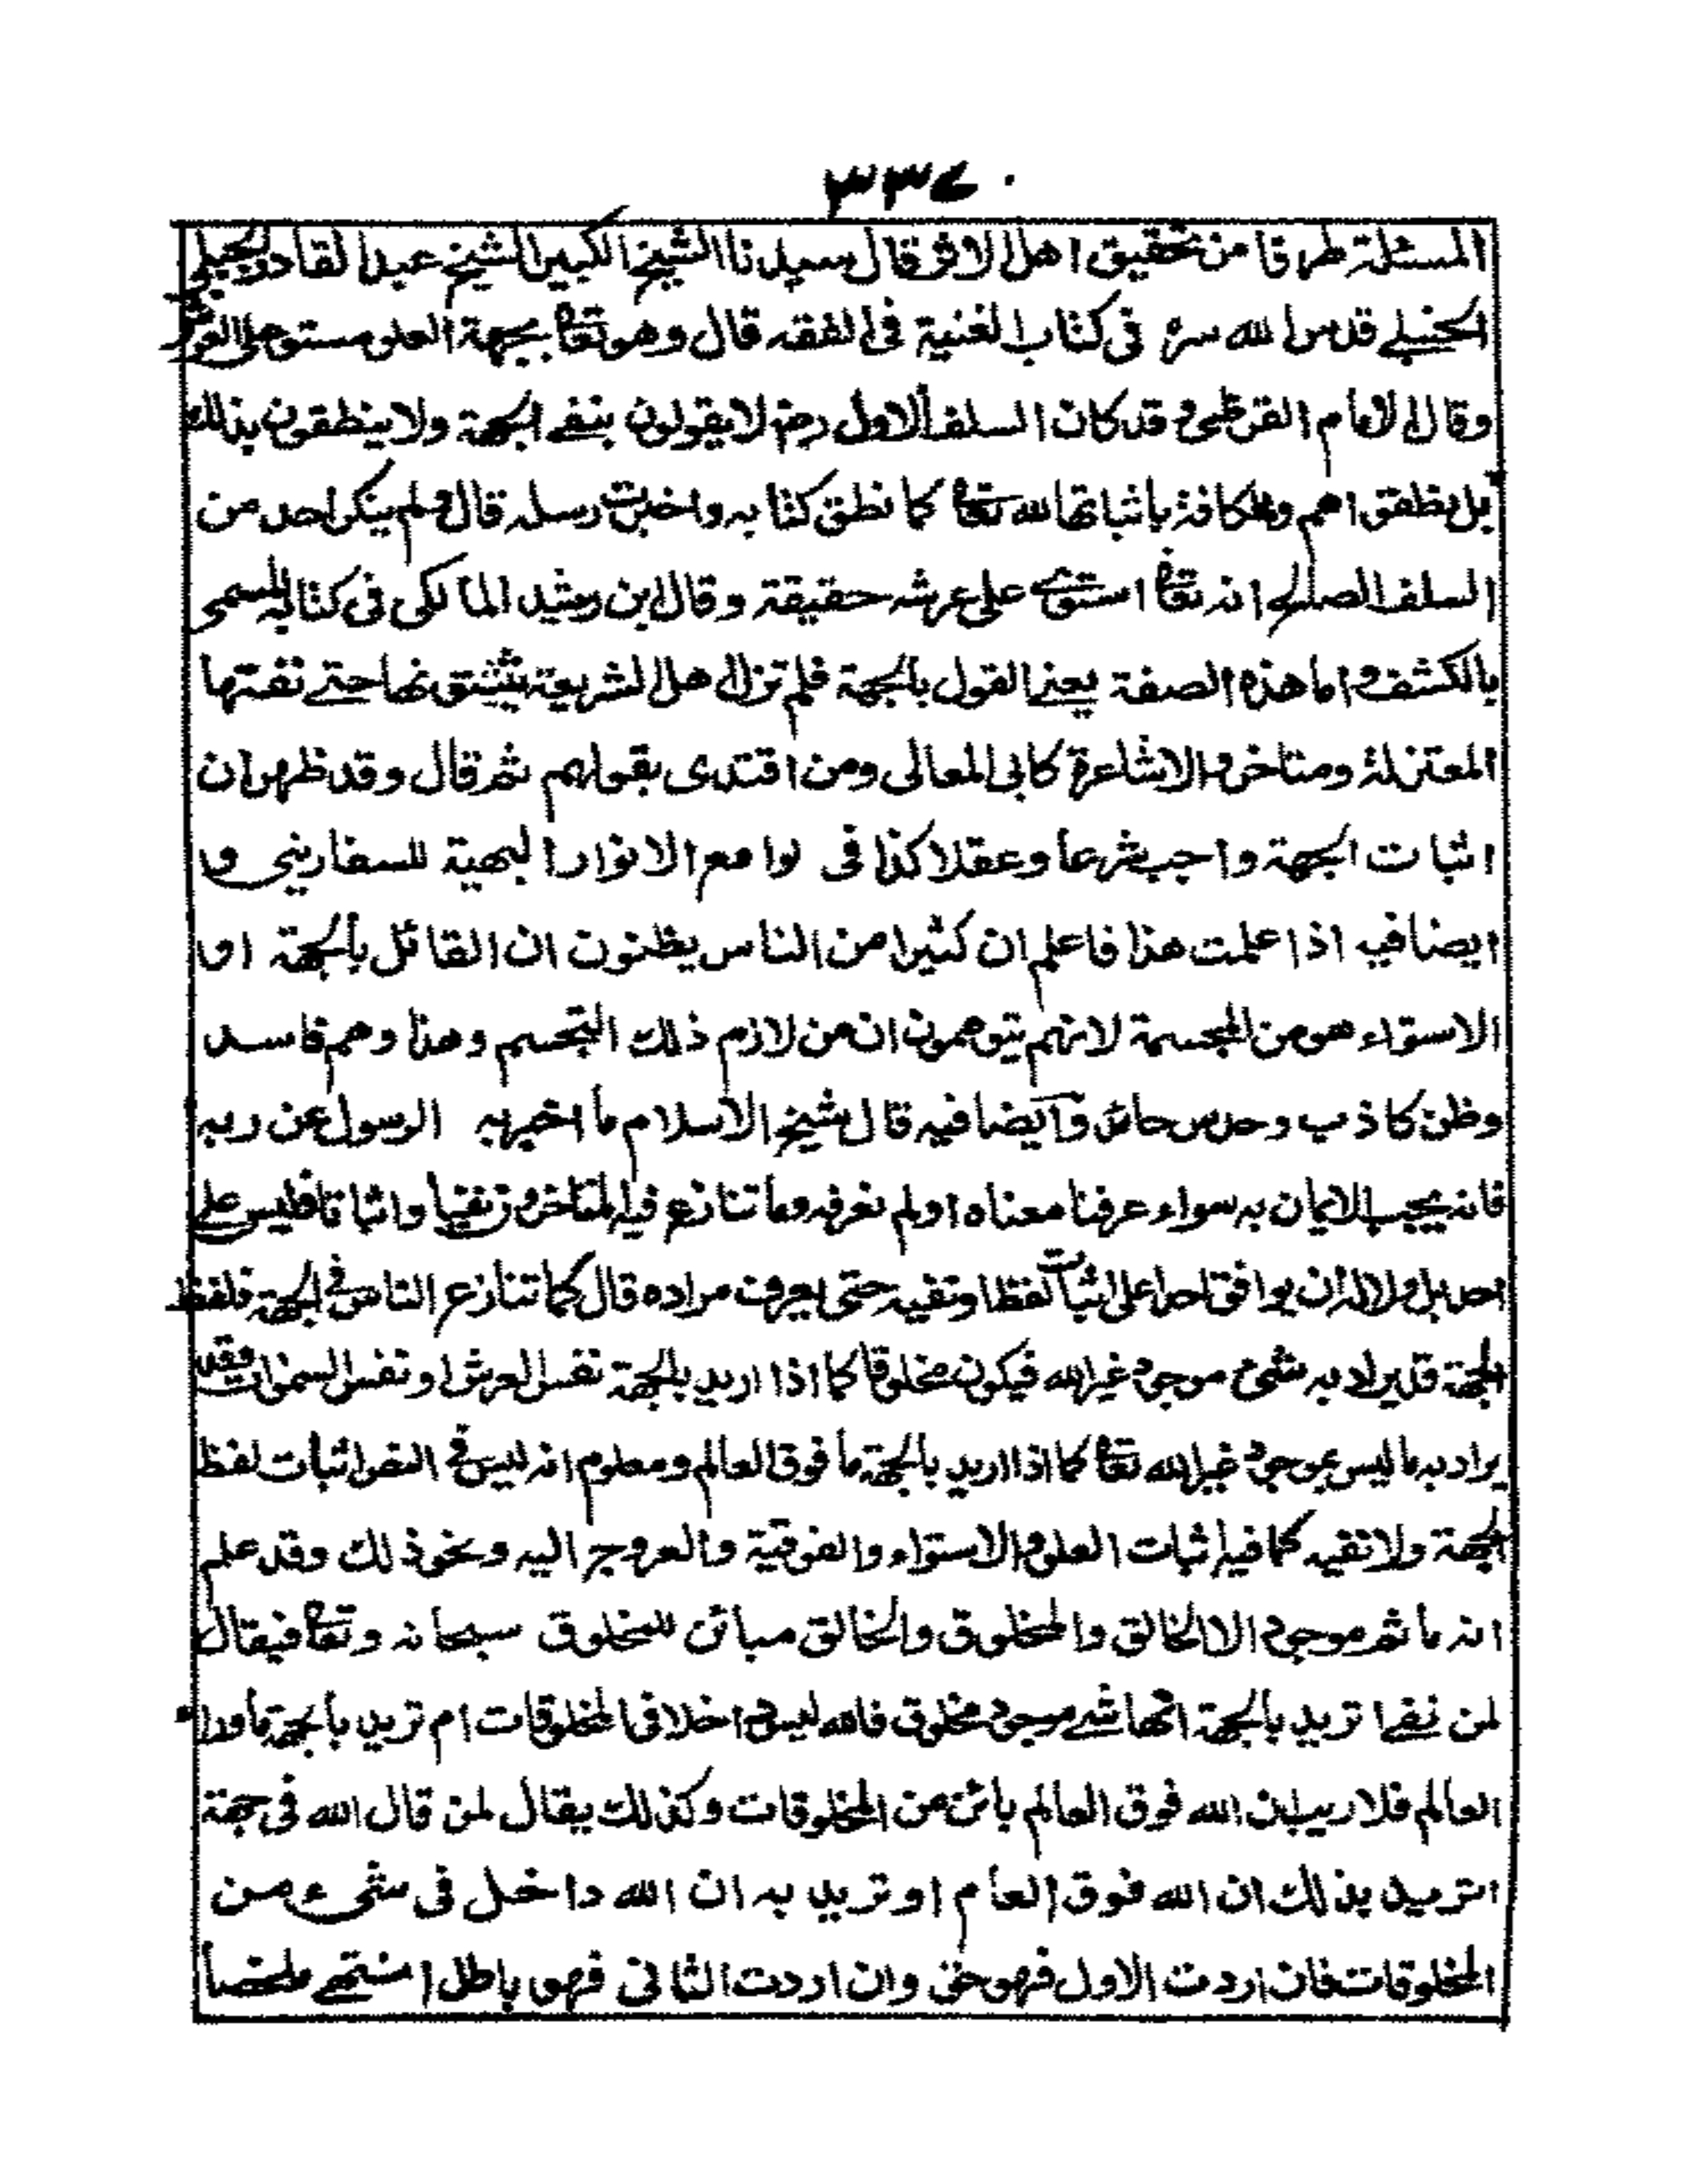 ٣٣٤
المسئلة طرفا من تحقيق اهل الاثر قال سيدنا الشيخ الكبير الشيخ عبد القادر الجيلي
الحنبلے قدس الله سرہ فی كتاب الغنية فی الفقه قال وهو تعا بجهة العلو مستو علی العرش
وقال الامام القرطبی وقد كان السلف الاول رضہ لا يقولون بنفے الجهة ولا ينطقون بذلك
بل نطقوا هم والكافة باثباتها لله تعا كما نطق كتابه واخبرت رسله قال ولم ينكر احد من
السلف الصالح انه تعا استوے علی عرشه حقيقة وقال ابن رشيد المالكی فی كتابه المسمی
بالكشف واما هذه الصفة يعنے القول بالجهة فلم تزل اهل الشريعة يثبتونها حتے نفتها
المعتزلة ومتاخرو الاشاعرة كابی المعالی ومن اقتدی بقولهم ثم قال وقد ظهر ان
اثبات الجهة واجب شرعا وعقلا كذا فی لوامع الانوار البهية للسفارينی و
ايضا فيه اذا علمت هذا فاعلم ان كثيرا من الناس يظنون ان القائل بالجهة او
الاستواء هو من المجسمة لانهم يتوهمون ان من لازم ذلك التجسيم وهذا وهم فاسد
وظن كاذب وحدس حائد وايضا فيه قال شيخ الاسلام ما اخبر به الرسول عن ربه
فانه يجب الايمان به سواء عرفنا معناه او لم نعرفه وما تنازع فيه المتاخرون نفيا واثباتا فليس علی
احد بل ولا له ان يوافق احدا علی اثبات لفظ او نفيه حتی يعرف مراده قال كما تنازع الناس فی الجهة فلفظ
الجهة قد يراد به شیء موجود غير الله فيكون مخلوقا كما اذا اريد بالجهة نفس العرش او نفس السموات وقد
يراد به ما ليس بموجود غير الله تعا كما اذا اريد بالجهة ما فوق العالم ومعلوم انه ليس فی النص اثبات لفظ
الجهة ولا نفيه كما فيه اثبات العلو والاستواء والفوقية والعروج اليه ونحو ذلك وقد علم
انه ما ثم موجود الا الخالق والمخلوق والخالق مبائن للمخلوق سبحانه وتعا فيقال
لمن نفے ا تريد بالجهة انها شے موجود مخلوق فالله ليس داخلا فی المخلوقات ام تريد بالجهة ما وراء
العالم فلا ريب ان الله فوق العالم بائن من المخلوقات وكذلك يقال لمن قال الله فی جهة
اتريد بذلك ان الله فوق العالم او تريد به ان الله داخل فی شیء من
المخلوقات فان اردت الاول فهو حق وان اردت الثانی فهو باطل انتهے ملخصا